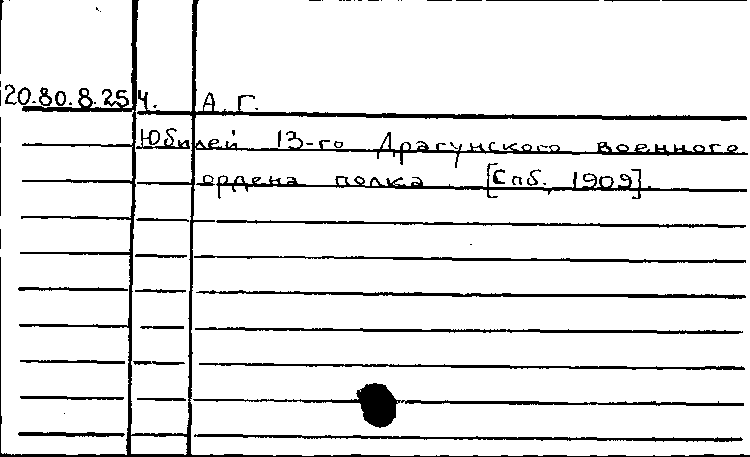 20.80.8.254. А. Г.
Юбилей 13-го Драгунского военного
ордена полка [Спб., 1909].